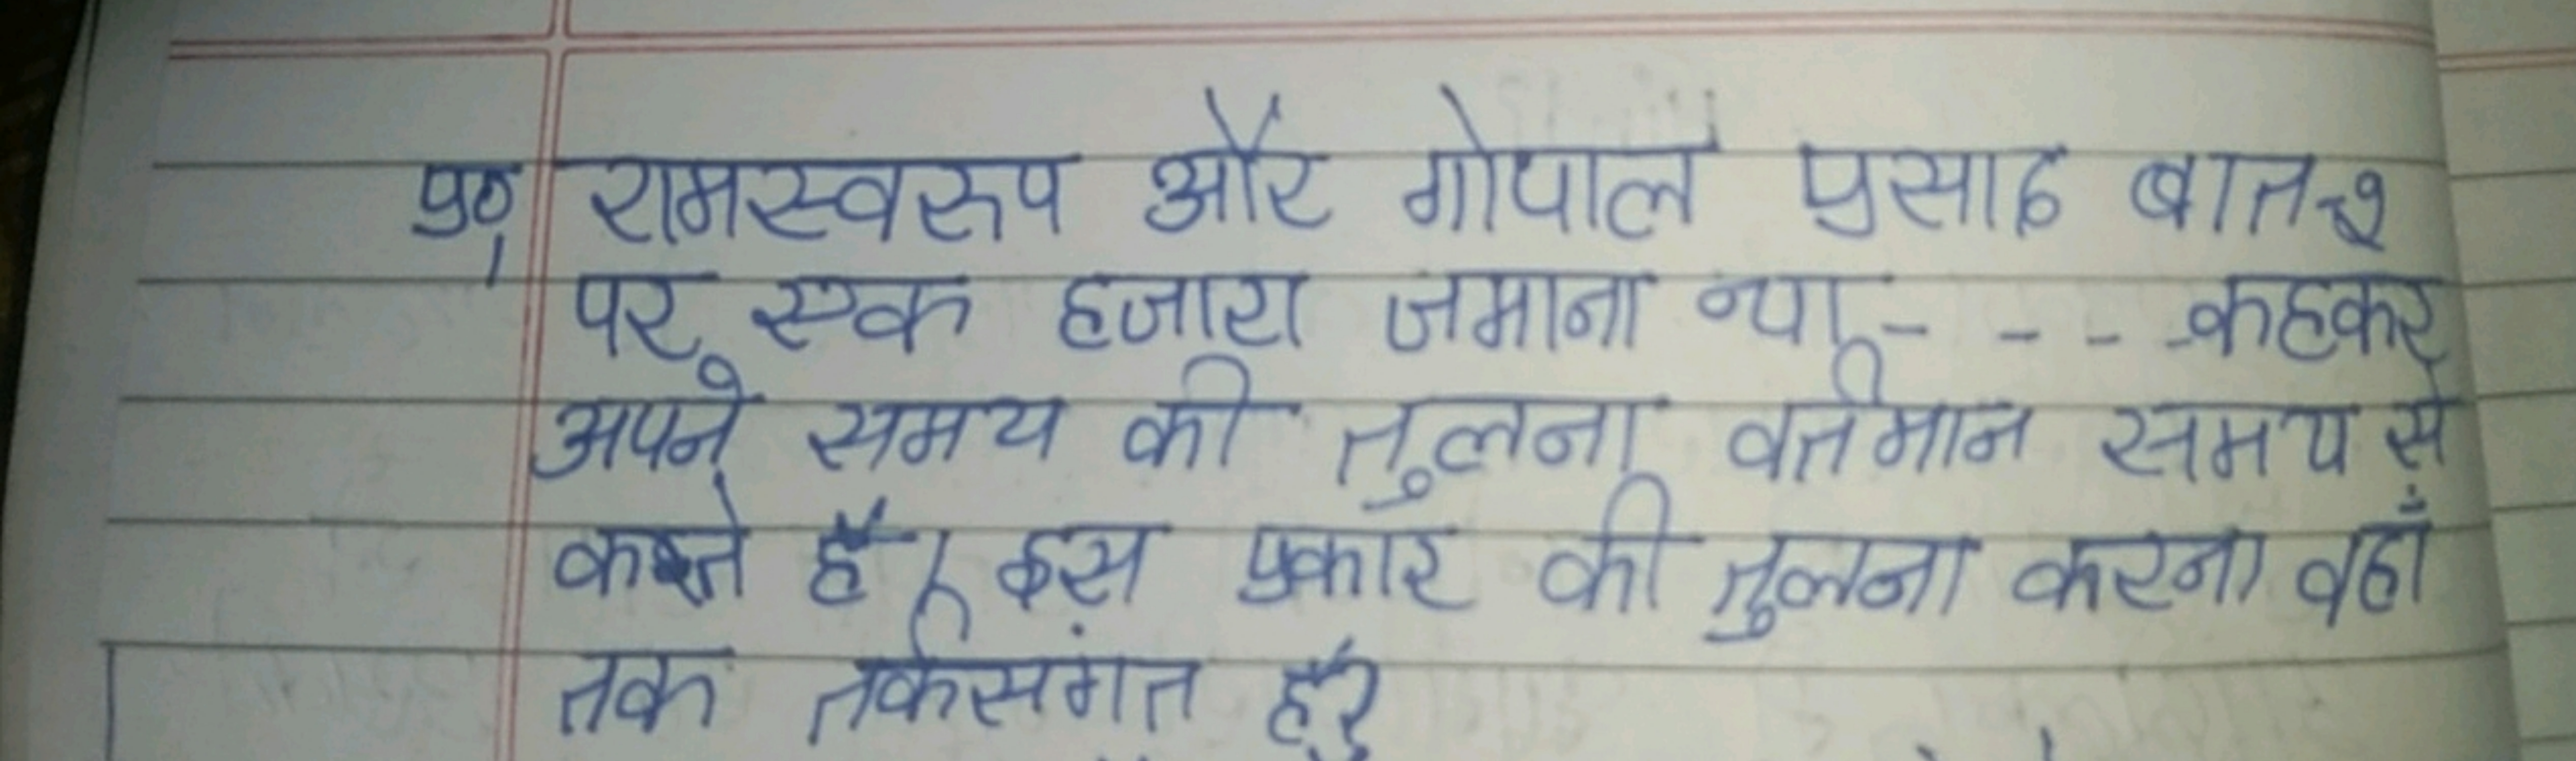 प्र० रामस्वरूप और गोपाल प्रसाद बात-२
पर एक हजारा जमाना था - - - कहकर
अपने समय की तुलना वर्तमान समय से
करते हैं। इस प्रकार की तुलना करना वहाँ
तक तर्कसंगत है?